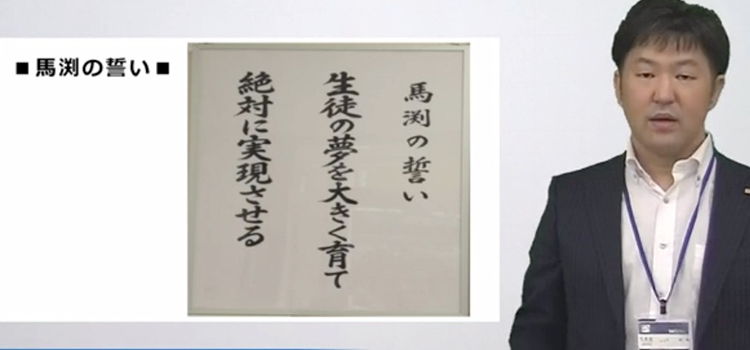 ■馬渕の誓い■
馬渕の誓い
生徒の夢を大きく育て
絶対に実現させる